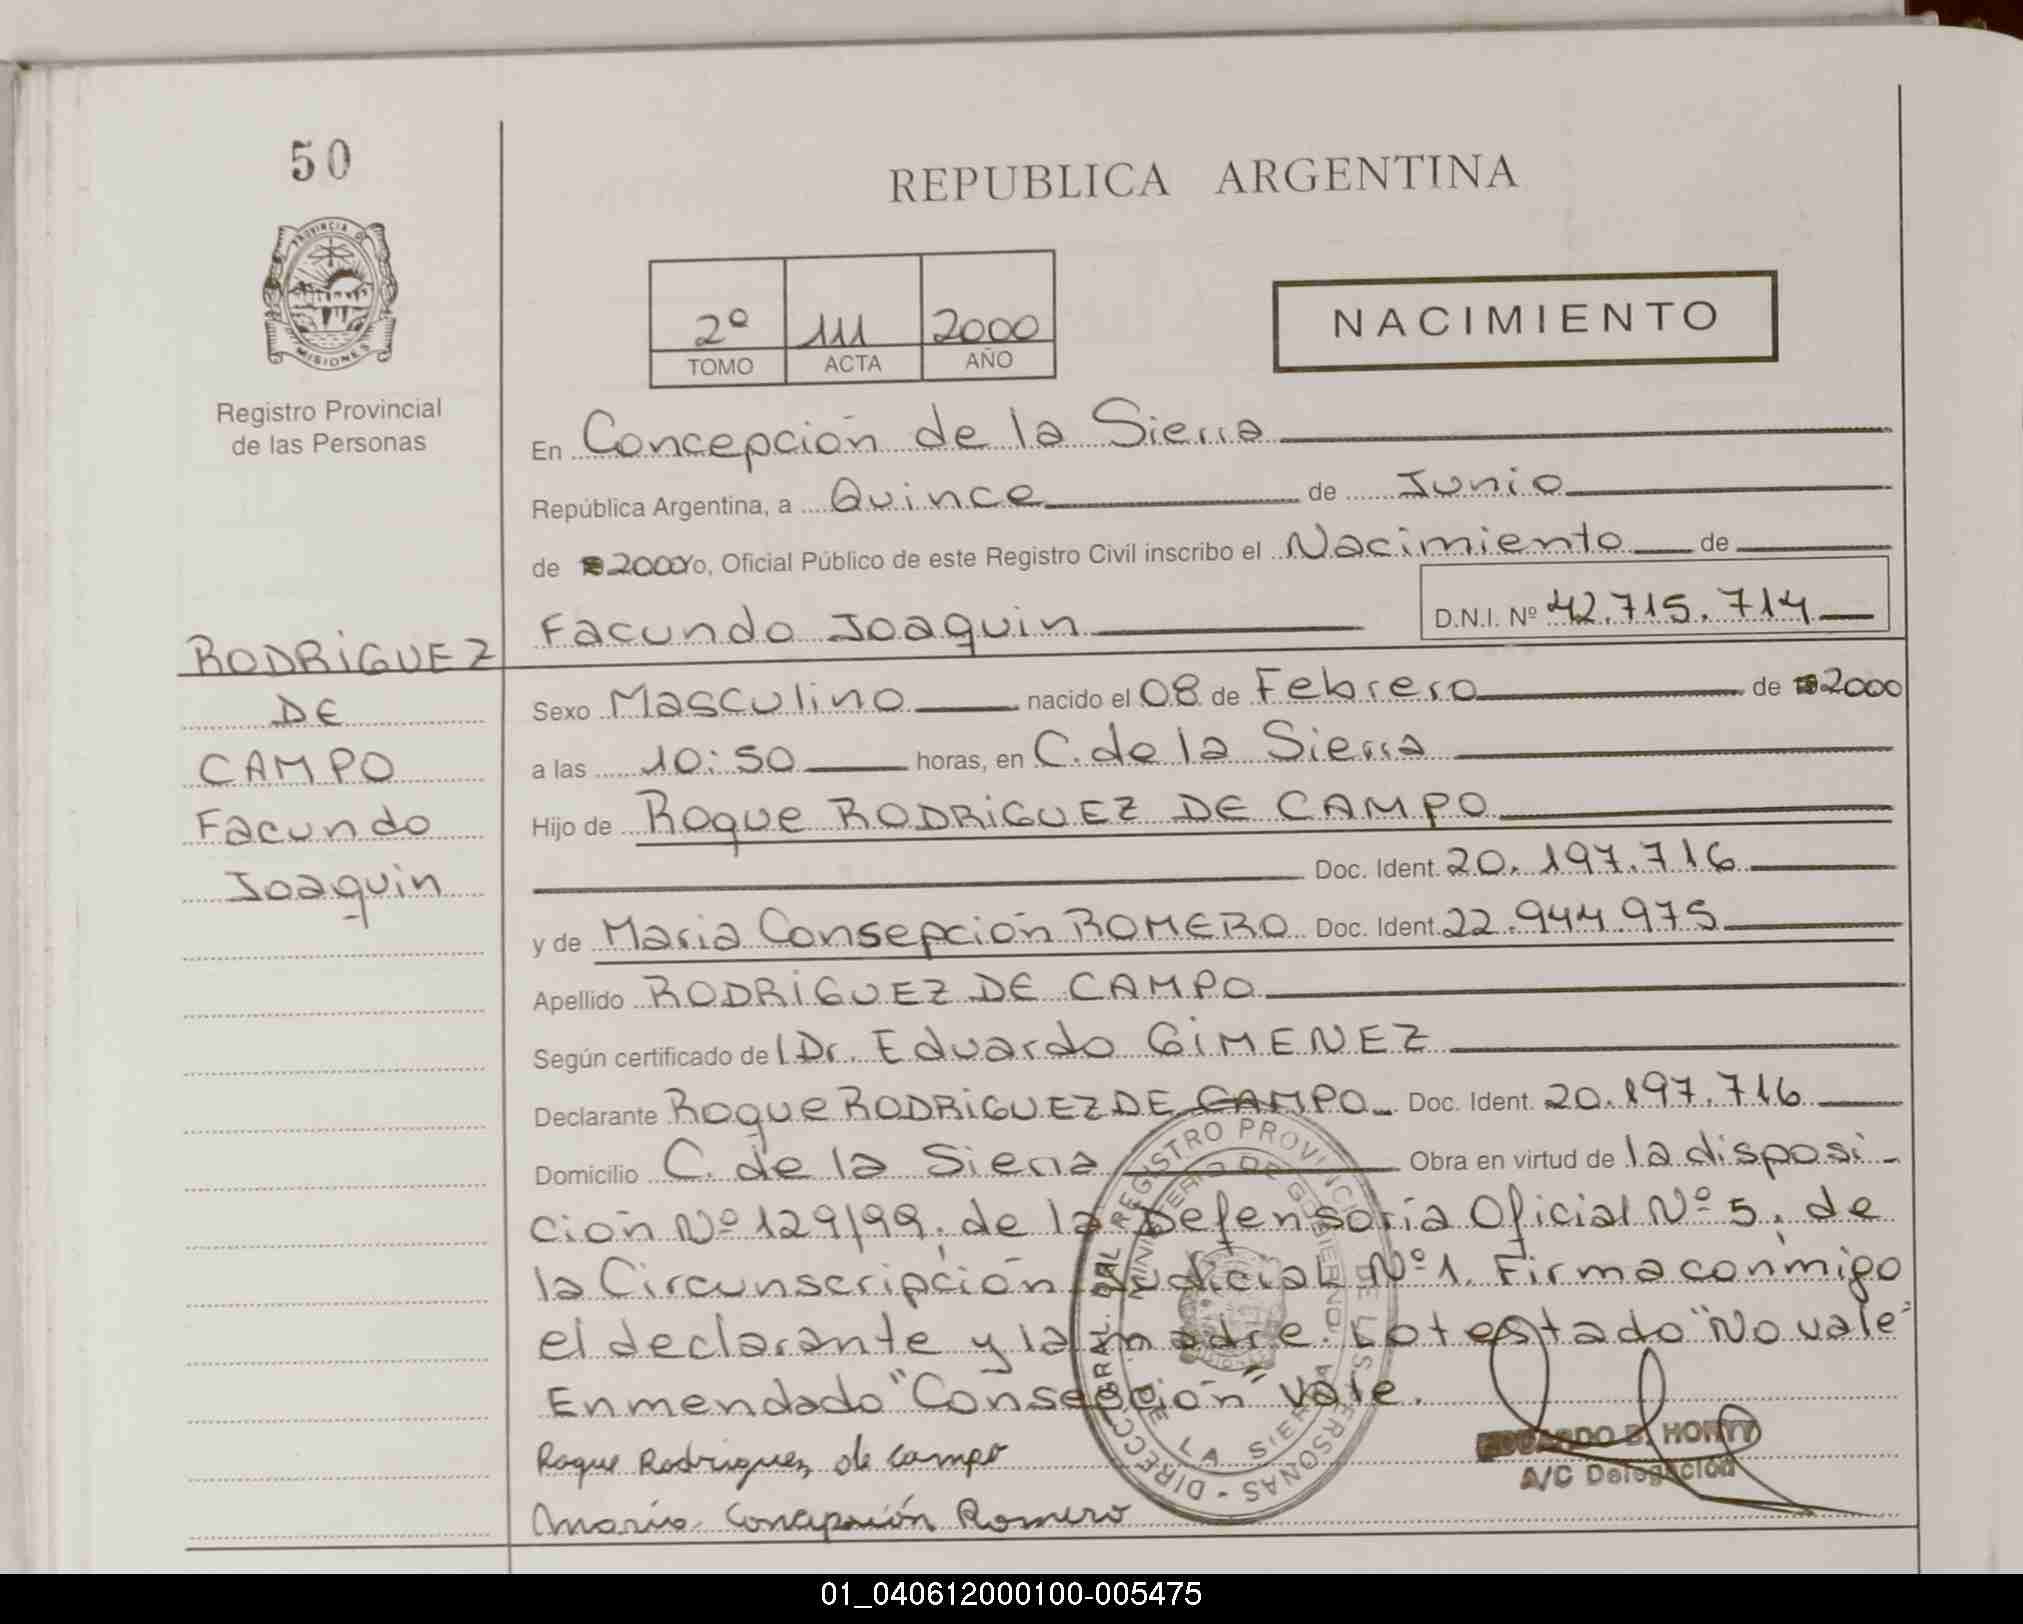 50
REPUBLICA ARGENTINA
PROVINCIA DE
MISIONES
Registro Provincial
de las Personas
2º 111 2000
TOMO ACTA AÑO
NACIMIENTO
En Concepción de la Sierra
República Argentina, a Quince de Junio
de 2000 Yo, Oficial Público de este Registro Civil inscribo el Nacimiento de
Facundo Joaquin D.N.I. Nº 42.715.714
RODRIGUEZ
DE
CAMPO
Facundo
Joaquin
Sexo Masculino nacido el 08 de Febrero de 2000
a las 10:50 horas, en C. de la Sierra
Hijo de Roque RODRIGUEZ DE CAMPO
Doc. Ident. 20.197.716
y de Maria Consepción ROMERO Doc. Ident. 22.944.975
Apellido RODRIGUEZ DE CAMPO
Según certificado del Dr. Eduardo GIMENEZ
Declarante Roque RODRIGUEZ DE CAMPO Doc. Ident. 20.197.716
Domicilio C. de la Sierra Obra en virtud de la disposi-
ción Nº 129/99, de la Defensoría Oficial Nº 5, de
la Circunscripción Judicial Nº 1. Firma conmigo
el declarante y la madre. Lo testado "No vale"
Enmendado "Consepción" Vale.
Roque Rodriguez de campo
Maria Concepción Romero
DIRECC. GRAL. DEL REGISTRO PROVINCIAL DE LAS PERSONAS
MINISTERIO DE GOBIERNO
DE LA SIERRA
EDUARDO B.
A/C Delegación
01_040612000100-005475